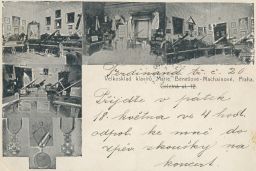 Ferdinand tř. č. 20
Velkosklad klavírů, Marie Benešové-Machainové, Praha.
Celetná ul. 12.
Přijďte v pátek
18. května ve 4 hod.
odpol. ke mně do
zpěv. zkoušky na
koncert.